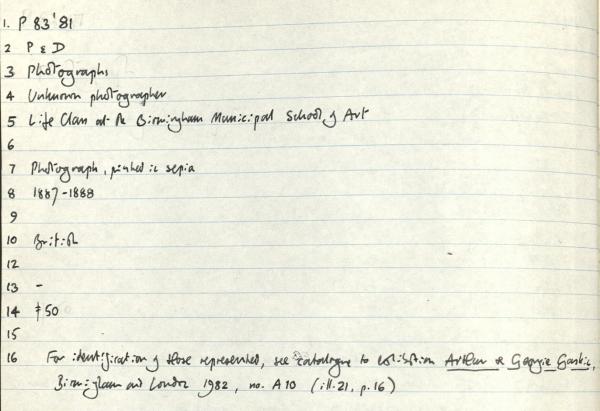 1. P 83'81
2 P & D
3 Photographs
4 Unknown photographer
5 Life Class at the Birmingham Municipal School of Art
6
7 Photograph, printed in sepia
8 1887-1888
9
10 British
12
13 -
14 £50
15
16 For identification of those represented, see catalogue to exhibition Arthur & Georgie Gaskin,
Birmingham and London 1982, no. A10 (ill. 21, p. 16)